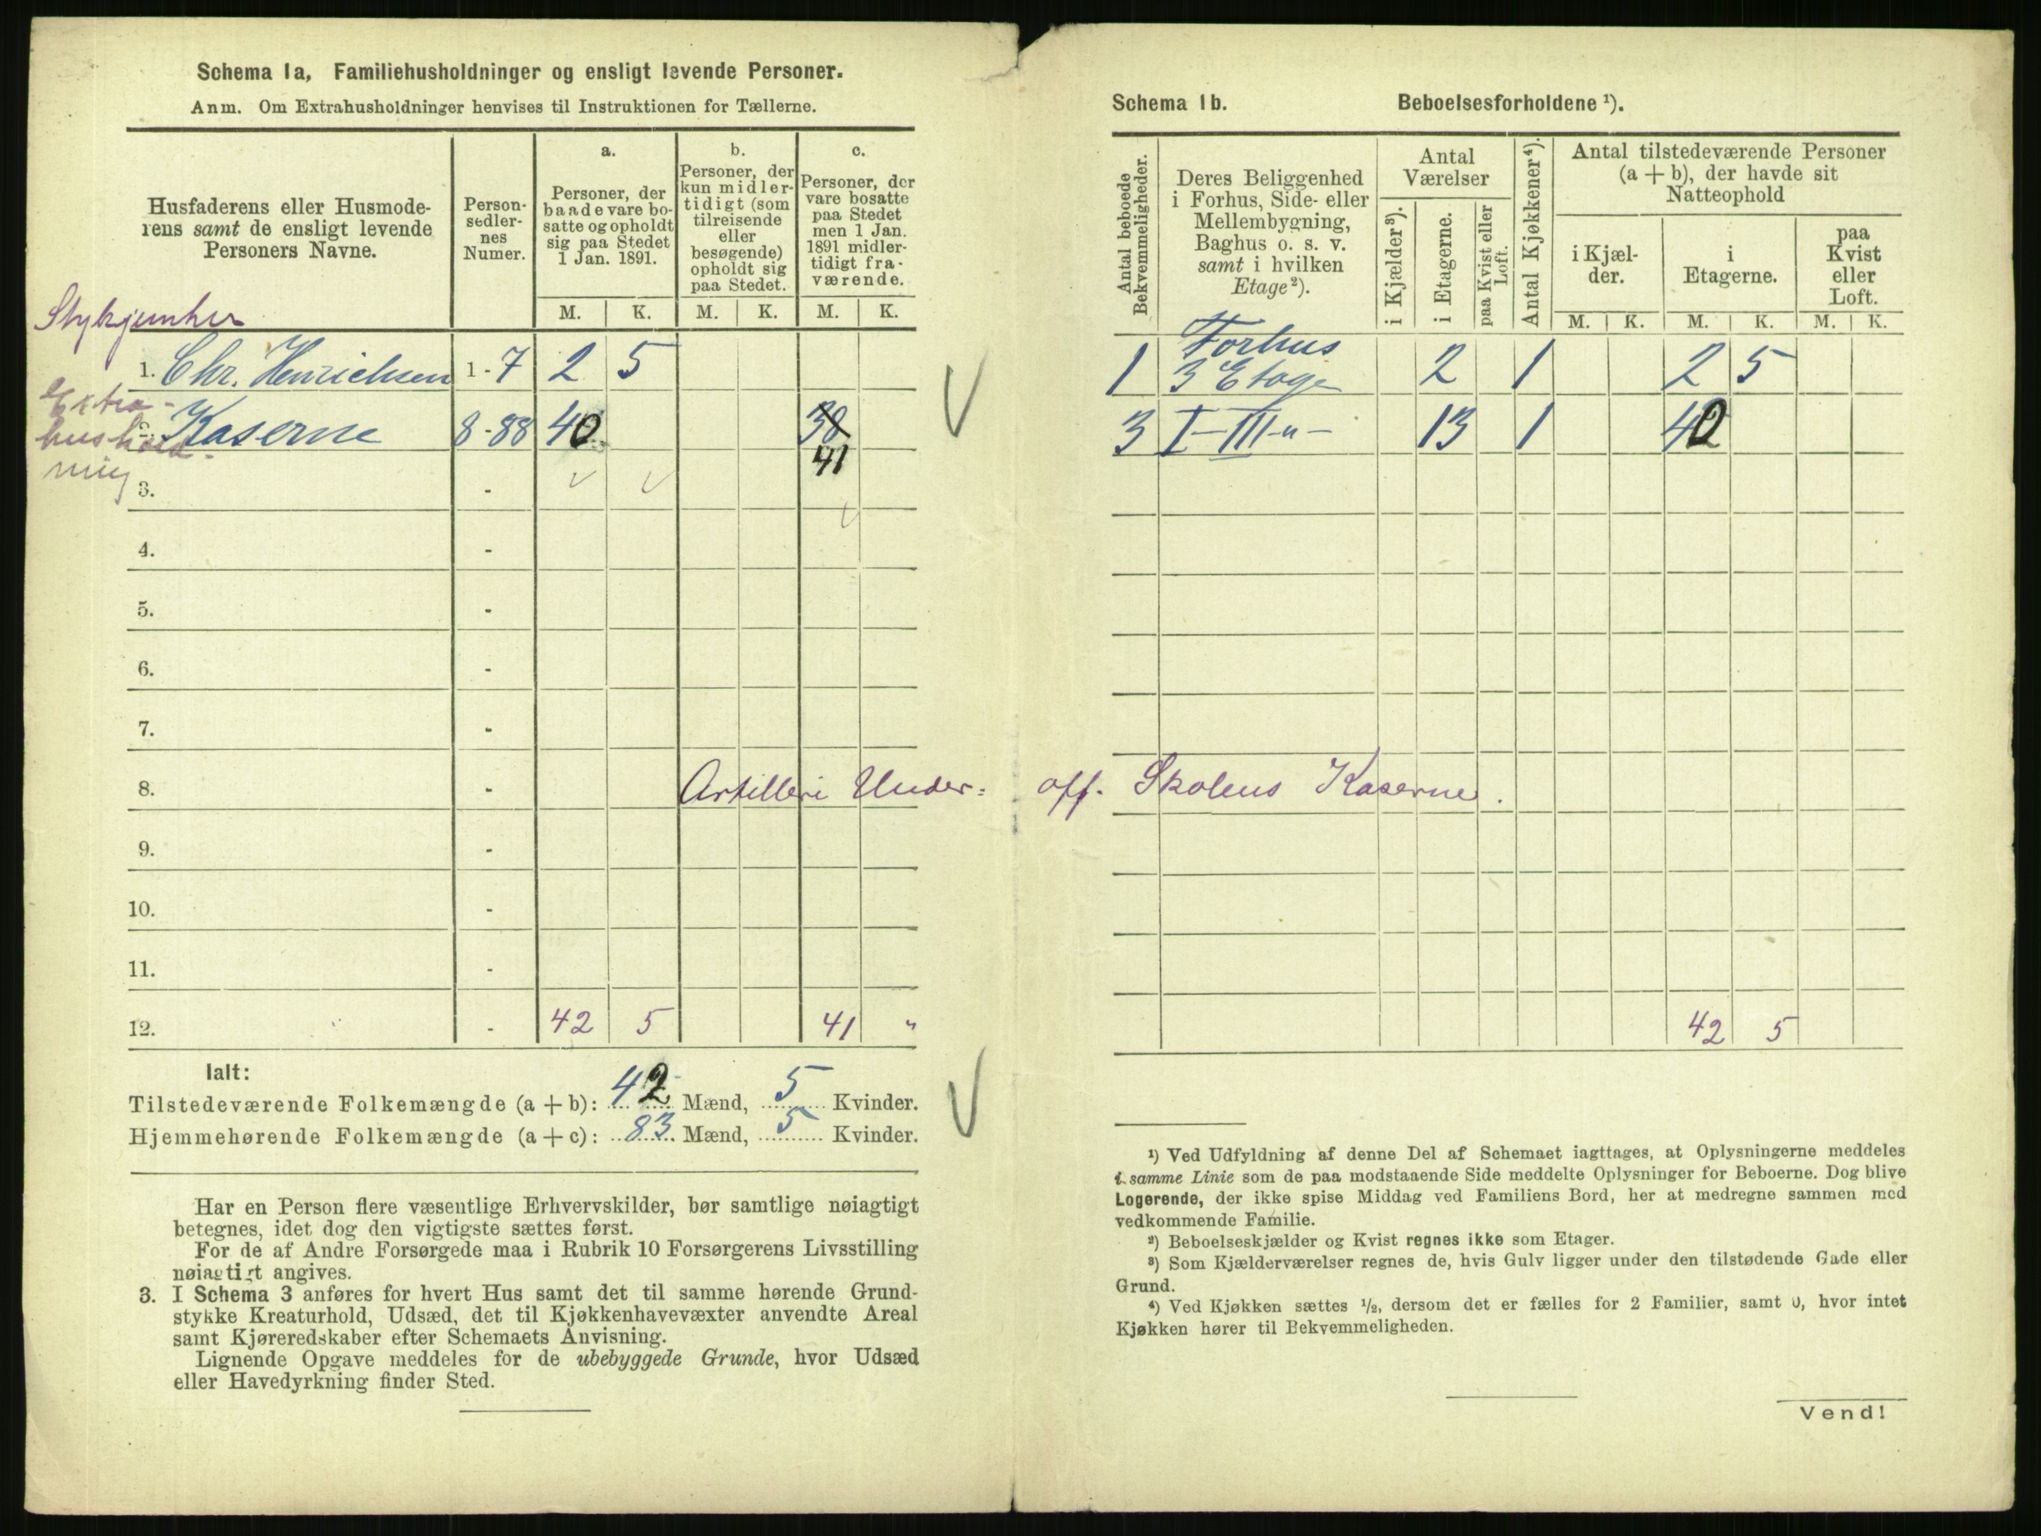 Schema 1a, Familiehusholdninger og ensligt levende Personer.
Anm. Om Extrahusholdninger henvises til Instruktionen for Tællerne.
Husfaderens eller Husmode-
rens samt de ensligt levende
Personers Navne.
Person-
sedler-
nes
Numer.
a.
Personer, der
baade vare bo-
satte og opholdt
sig paa Stedet
1 Jan. 1891.
b.
Personer, der
kun midler-
tidigt (som
tilreisende
eller
besøgende)
opholdt sig
paa Stedet.
c.
Personer, der
vare bosatte
paa Stedet
men 1 Jan.
1891 midler-
tidigt fra-
værende.
M. K. M. K. M. K.
Stykjunker
1. Chr. Henrichsen 1-7 2 5
Extra-
hushold-
ning
2. Kaserne 8-88 40 38
41
3. -
4. -
5. -
6. -
7. -
8. - Artilleri Under=
9. -
10. -
11. -
12. - 42 5 41 "
Ialt:
Tilstedeværende Folkemængde (a + b): 42 Mænd, 5 Kvinder.
Hjemmehørende Folkemængde (a + c): 83 Mænd, 5 Kvinder.
Har en Person flere væsentlige Erhvervskilder, bør samtlige nøiagtigt
betegnes, idet dog den vigtigste sættes først.
For de af Andre Forsørgede maa i Rubrik 10 Forsørgerens Livsstilling
nøiagtigt angives.
3. I Schema 3 anføres for hvert Hus samt det til samme hørende Grund-
stykke Kreaturhold, Udsæd, det til Kjøkkenhavevæxter anvendte Areal
samt Kjøreredskaber efter Schemaets Anvisning.
Lignende Opgave meddeles for de ubebyggede Grunde, hvor Udsæd
eller Havedyrkning finder Sted.
Schema 1b. Beboelsesforholdene ¹).
Antal beboede
Bekvemmeligheder.
Deres Beliggenhed
i Forhus, Side- eller
Mellembygning,
Baghus o. s. v.
samt i hvilken
Etage²).
Antal
Værelser
i Kjælder³).
i Etagerne.
paa Kvist eller
Loft.
Antal Kjøkkener⁴).
Antal tilstedeværende Personer
(a + b), der havde sit
Natteophold
i Kjæl-
der.
i
Etagerne.
paa
Kvist
eller
Loft.
M. K. M. K. M. K.
Forhus
1 3 Etage 2 1 2 5
3 I-III-"- 13 1 40
off. Skolens Kaserne.
42 5
¹) Ved Udfyldning af denne Del af Schemaet iagttages, at Oplysningerne meddeles
i samme Linie som de paa modstaaende Side meddelte Oplysninger for Beboerne. Dog blive
Logerende, der ikke spise Middag ved Familiens Bord, her at medregne sammen med
vedkommende Familie.
²) Beboelseskjælder og Kvist regnes ikke som Etager.
³) Som Kjælderværelser regnes de, hvis Gulv ligger under den tilstødende Gade eller
Grund.
⁴) Ved Kjøkken sættes ½, dersom det er fælles for 2 Familier, samt 0, hvor intet
Kjøkken hører til Bekvemmeligheden.
Vend!